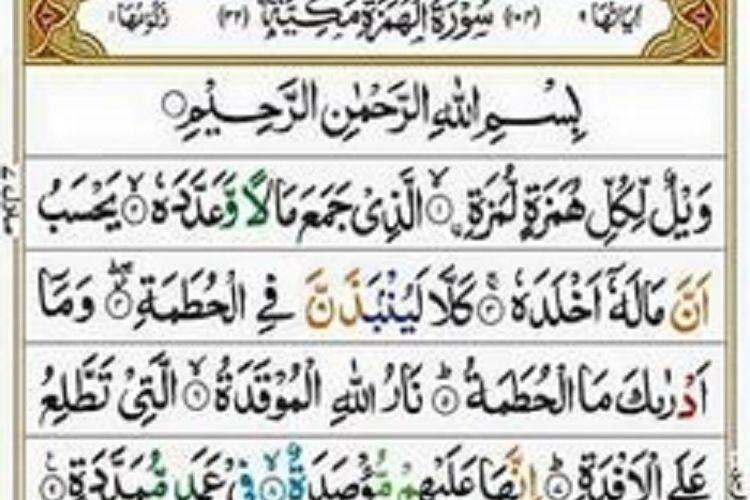 اٰیاتُهَا ٩ (١٠٤) سُوْرَةُ الْهُمَزَةِ مَكِّیَّةٌ (٣٢) رُكُوْعُهَا ١
بِسْمِ اللّٰهِ الرَّحْمٰنِ الرَّحِیْمِ
وَیْلٌ لِّكُلِّ هُمَزَةٍ لُّمَزَةِ ١ الَّذِیْ جَمَعَ مَالًا وَّعَدَّدَهٗ ٢ یَحْسَبُ
اَنَّ مَالَهٗۤ اَخْلَدَهٗ ٣ كَلَّا لَیُنْۢبَذَنَّ فِی الْحُطَمَةِ ٤ وَمَاۤ
اَدْرٰىكَ مَا الْحُطَمَةُ ٥ نَارُ اللّٰهِ الْمُوْقَدَةُ ٦ الَّتِیْ تَطَّلِعُ
عَلَی الْاَفْـِٕدَةِ ٧ اِنَّهَا عَلَیْهِمْ مُّؤْصَدَةٌ ٨ فِیْ عَمَدٍ مُّمَدَّدَةٍ ٩